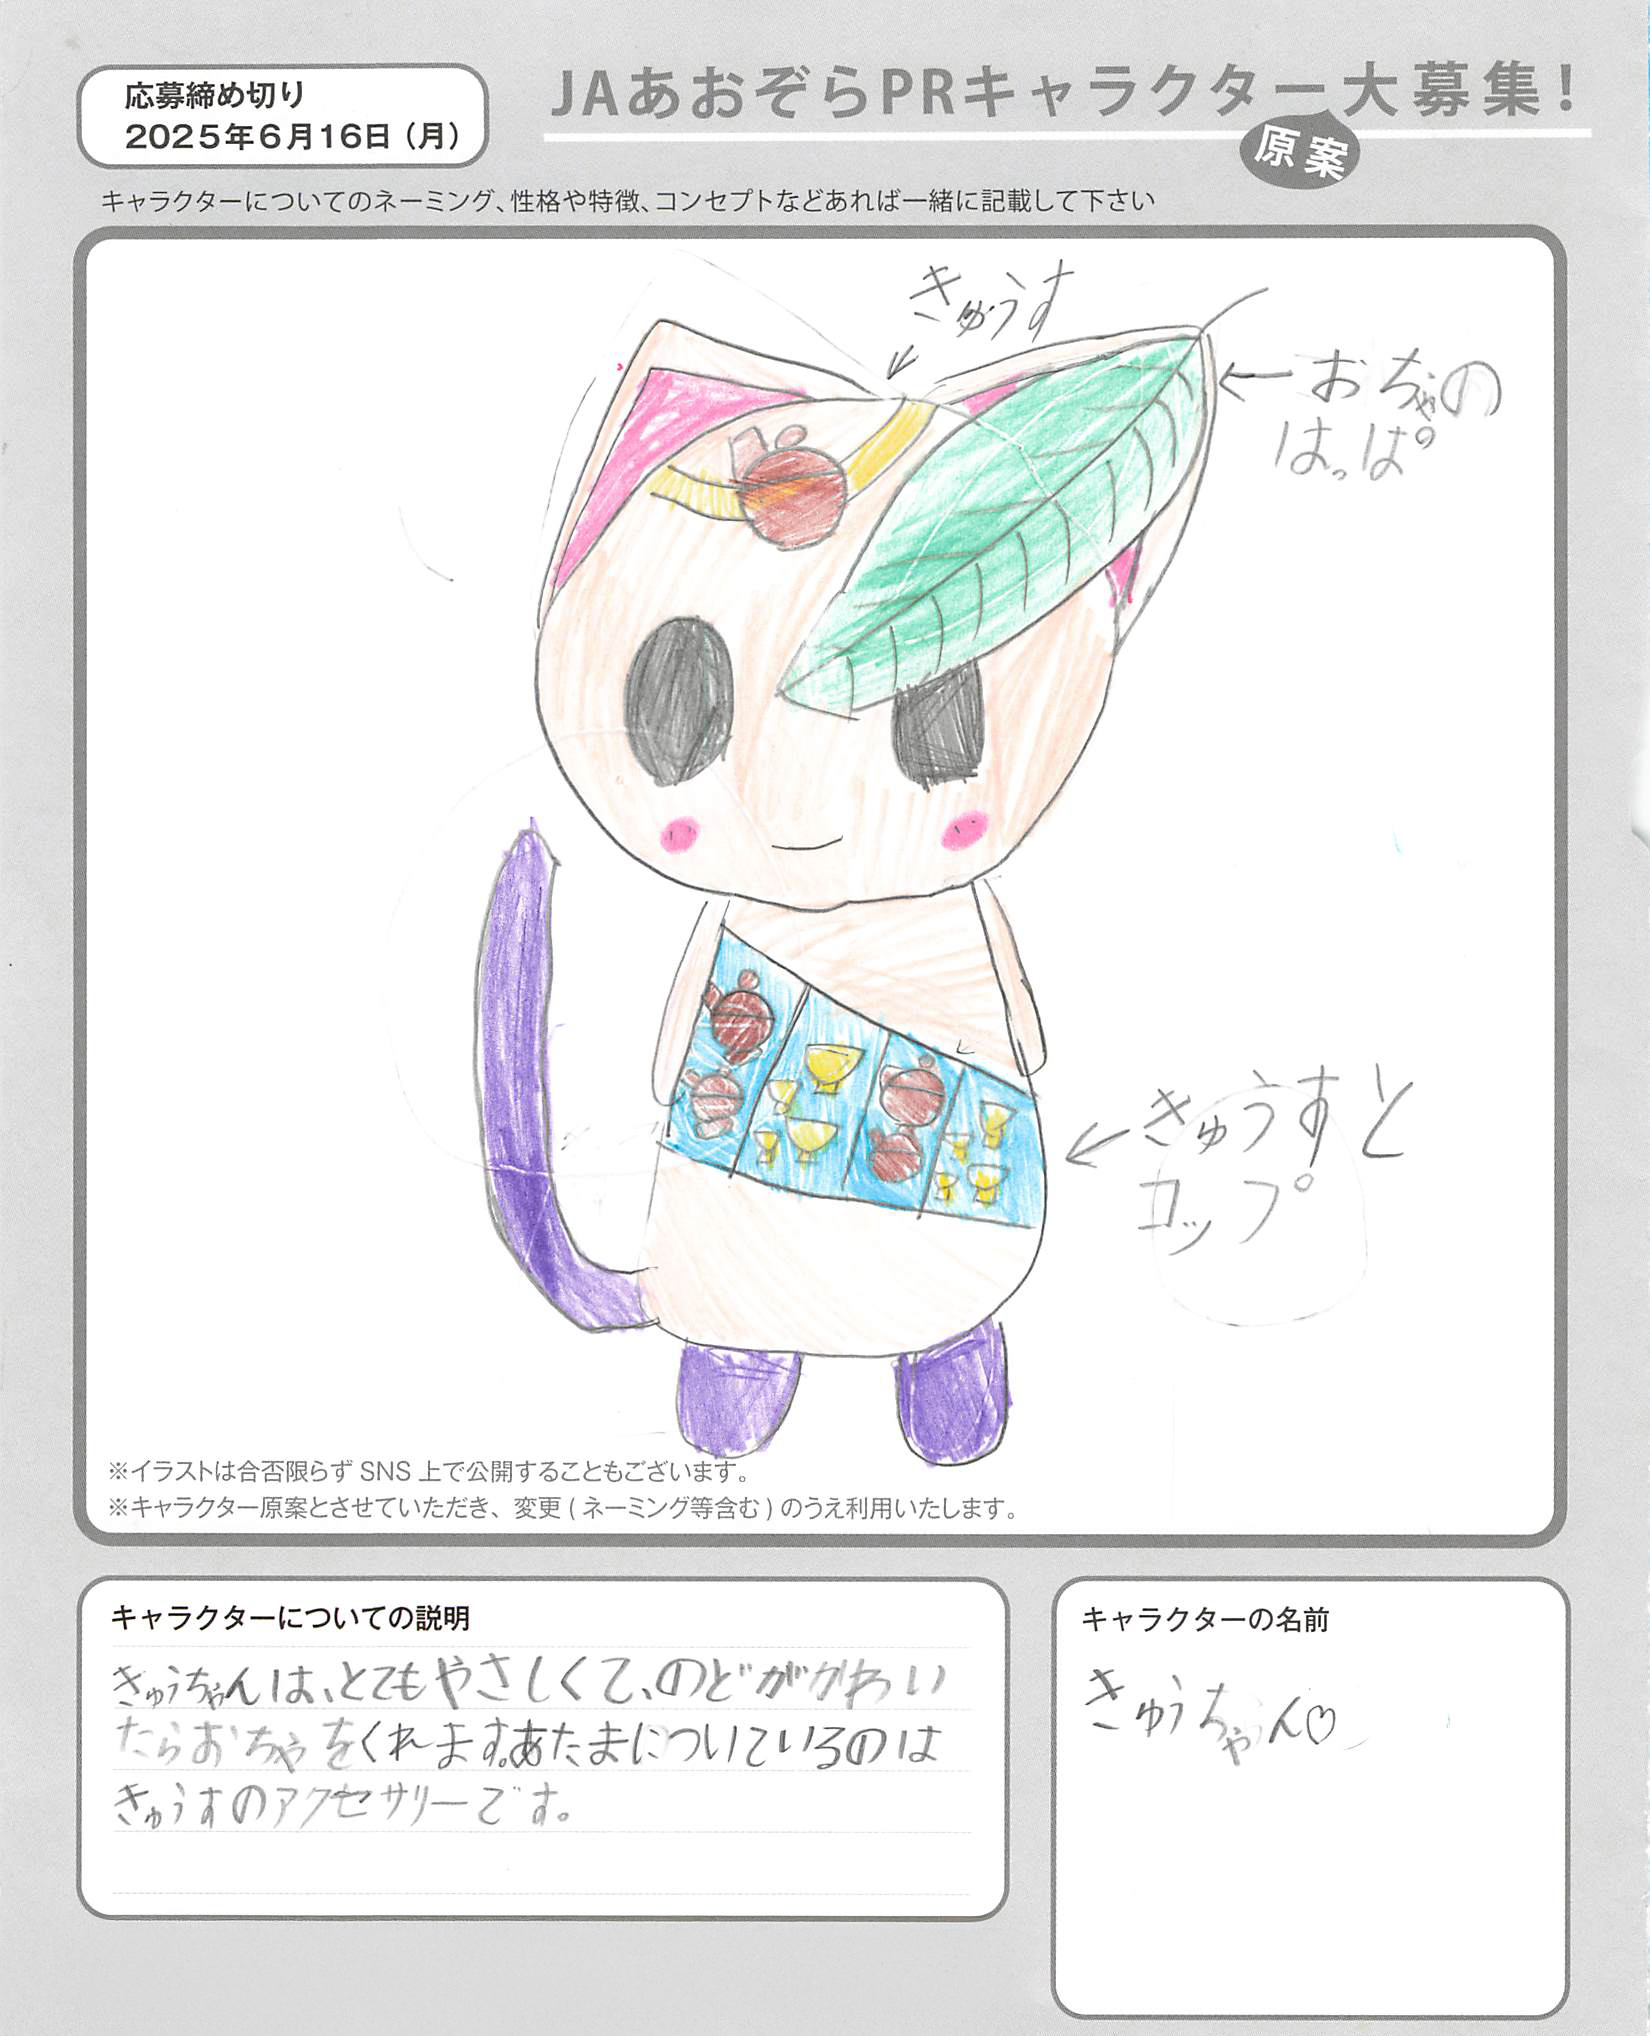 応募締め切り
2025年6月16日（月）
JAあおぞらPRキャラクター大募集！
原案
キャラクターについてのネーミング、性格や特徴、コンセプトなどあれば一緒に記載して下さい
きゅうす
おちゃの
はっぱ
きゅうすと
コップ
※イラストは合否限らず SNS 上で公開することもございます。
※キャラクター原案とさせていただき、変更(ネーミング等含む)のうえ利用いたします。
キャラクターについての説明
きゅうちゃんは、とてもやさしくて、のどがかわい
たらおちゃをくれます。あたまについているのは
きゅうすのアクセサリーです。
キャラクターの名前
きゅうちゃん♡